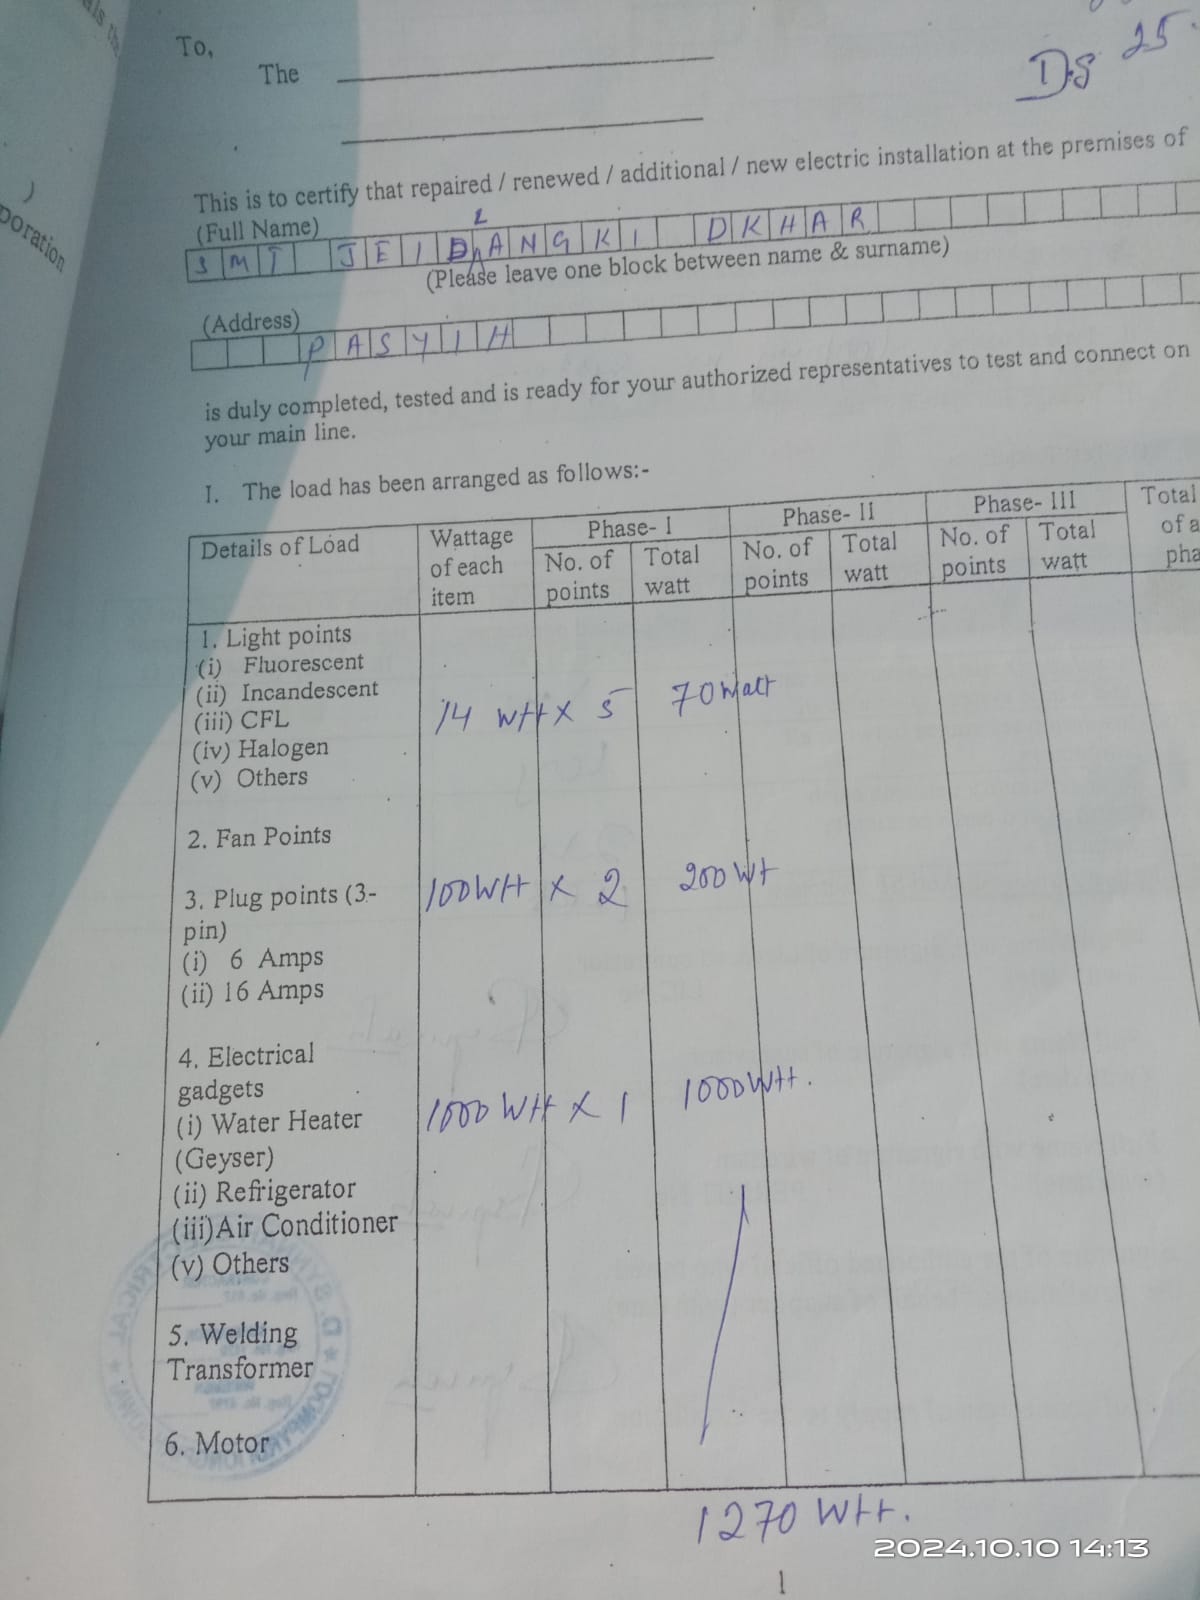 To,
The
DS 25
poration
This is to certify that repaired / renewed / additional / new electric installation at the premises of
(Full Name)
SMT JEIDANGKI DKHAR
(Please leave one block between name & surname)
(Address)
PASYIH
is duly completed, tested and is ready for your authorized representatives to test and connect on
your main line.
I. The load has been arranged as follows:-
Details of Load Wattage of each item Phase- I No. of points Total watt Phase- II No. of points Total watt Phase- III No. of points Total watt Total of a pha
1. Light points
(i) Fluorescent
(ii) Incandescent
(iii) CFL 14 WttX 5 70 Watt
(iv) Halogen
(v) Others
2. Fan Points
3. Plug points (3- 100Wtt X 2 200 Wt
pin)
(i) 6 Amps
(ii) 16 Amps
4. Electrical
gadgets
(i) Water Heater 1000 Wtt X 1 1000 Wtt.
(Geyser)
(ii) Refrigerator
(iii)Air Conditioner
(v) Others
5. Welding
Transformer
6. Motor
1270 Wtt.
2024.10.10 14:13
1